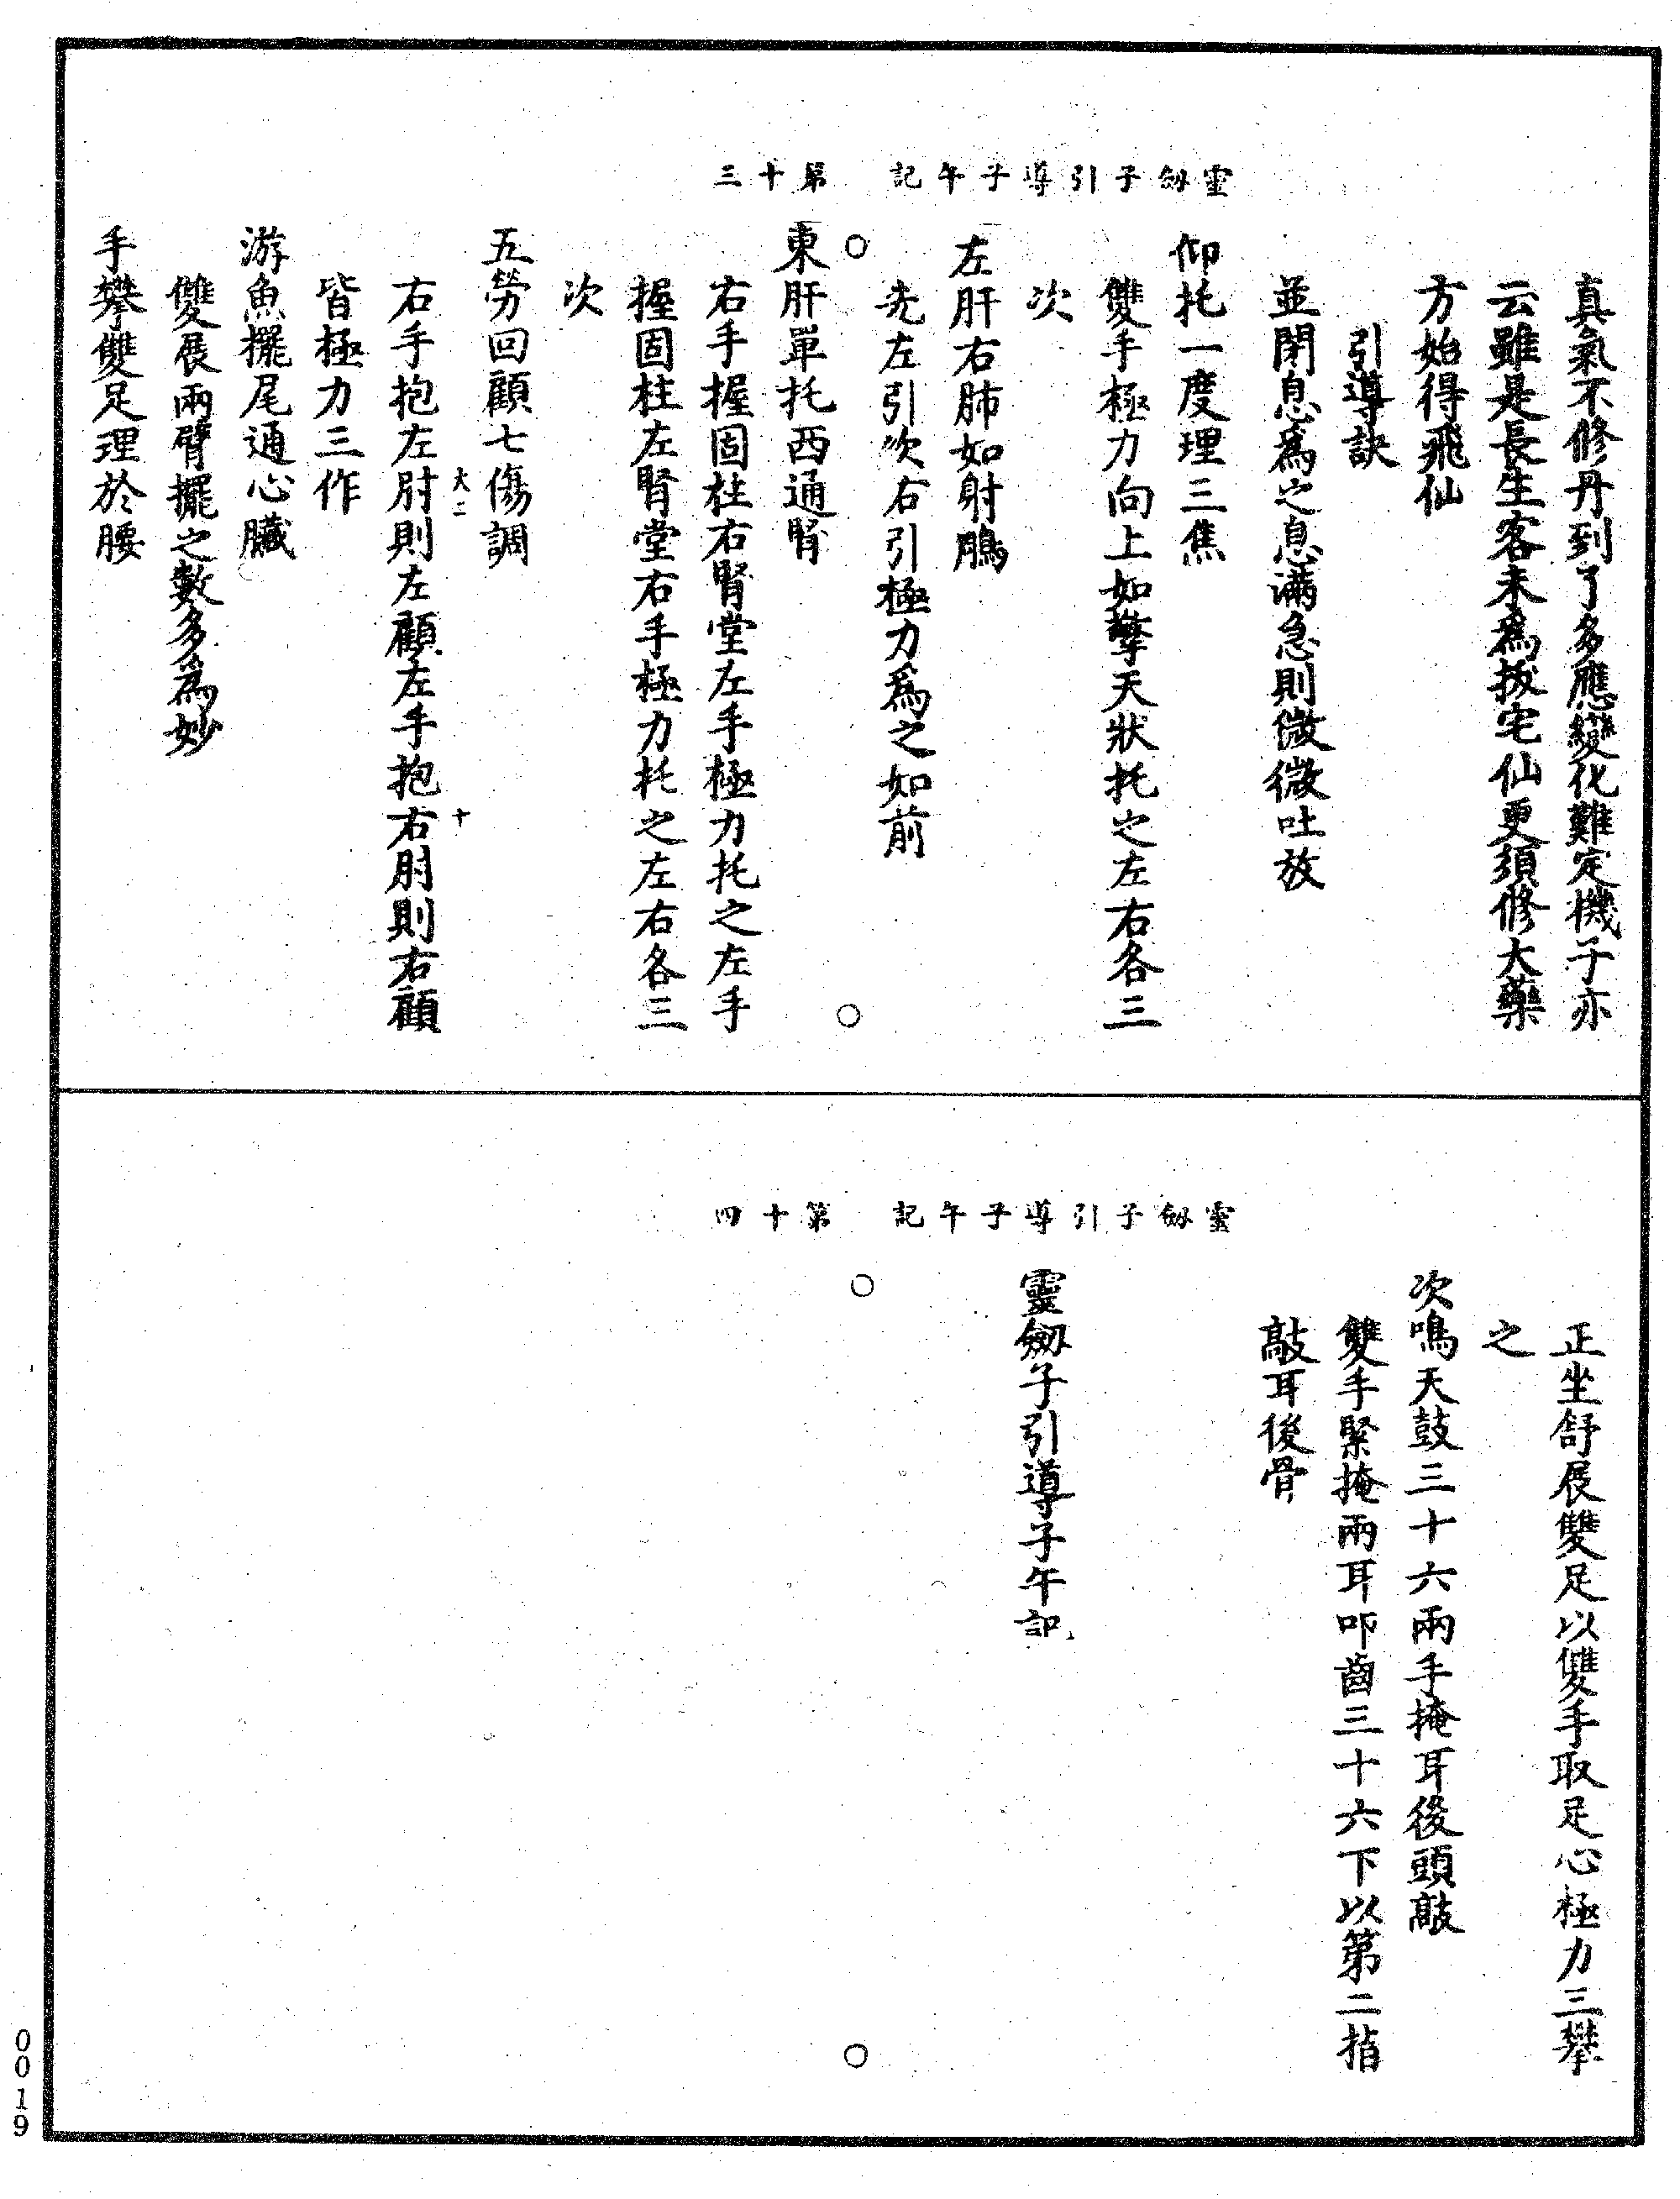 真氣不修丹到了多應變化難定機子亦
云雖是長生客未為拔宅仙更須修大藥
方始得飛仙
引導訣
並閉息為之息滿急則微微吐放
仰托一度理三焦
雙手極力向上如擎天狀托之左右各三
次
左肝右肺如射鵰
先左引次右引極力為之如前
靈劒子引導子午記 第十三
東肝單托西通腎
右手握固拄右腎堂左手極力托之左手
握固柱左腎堂右手極力托之左右各三
次
五勞回顧七傷調
大二 十
右手抱左肘則左顧左手抱右肘則右顧
皆極力三作
游魚擺尾通心臟
雙展兩臂擺之數多為妙
手攀雙足理於腰
正坐舒展雙足以雙手取足心極力三攀
之
次鳴天鼓三十六兩手掩耳後頭敲
雙手緊掩兩耳叩齒三十六下以第二指
敲耳後骨
靈劒子引導子午記
靈劒子引導子午記 第十四
0019